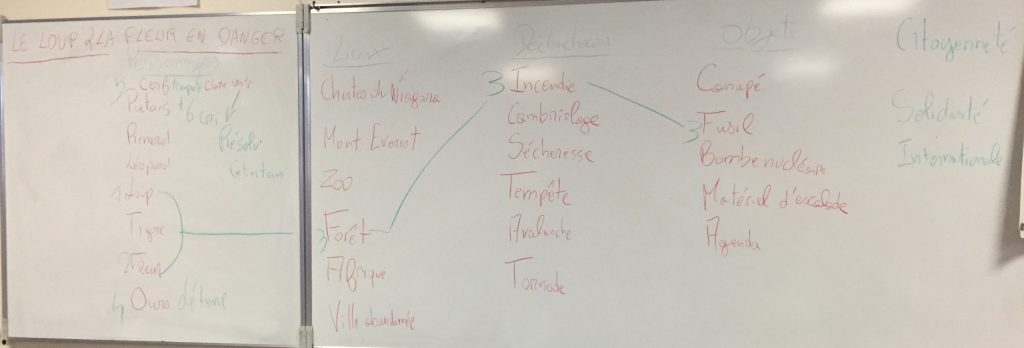 LE LOUP & LA FLEUR EN DANGER
Personnages
Cerf
Putois + 6 CP
Renard
Léopard
1 Loup
Tigre
2 Fleur
4 Ours
Résolu
Lieux
Chutes du Niagara
Mont Everest
Zoo
3 Forêt
Afrique
Ville abandonnée
Déclencheurs
3 Incendie
Cambriolage
Sécheresse
Tempête
Avalanche
Tornade
Objets
Canapé
3 Fusil
Bombe nucléaire
Matériel d'escalade
Agenda
Citoyenneté
Solidarité
Internationale